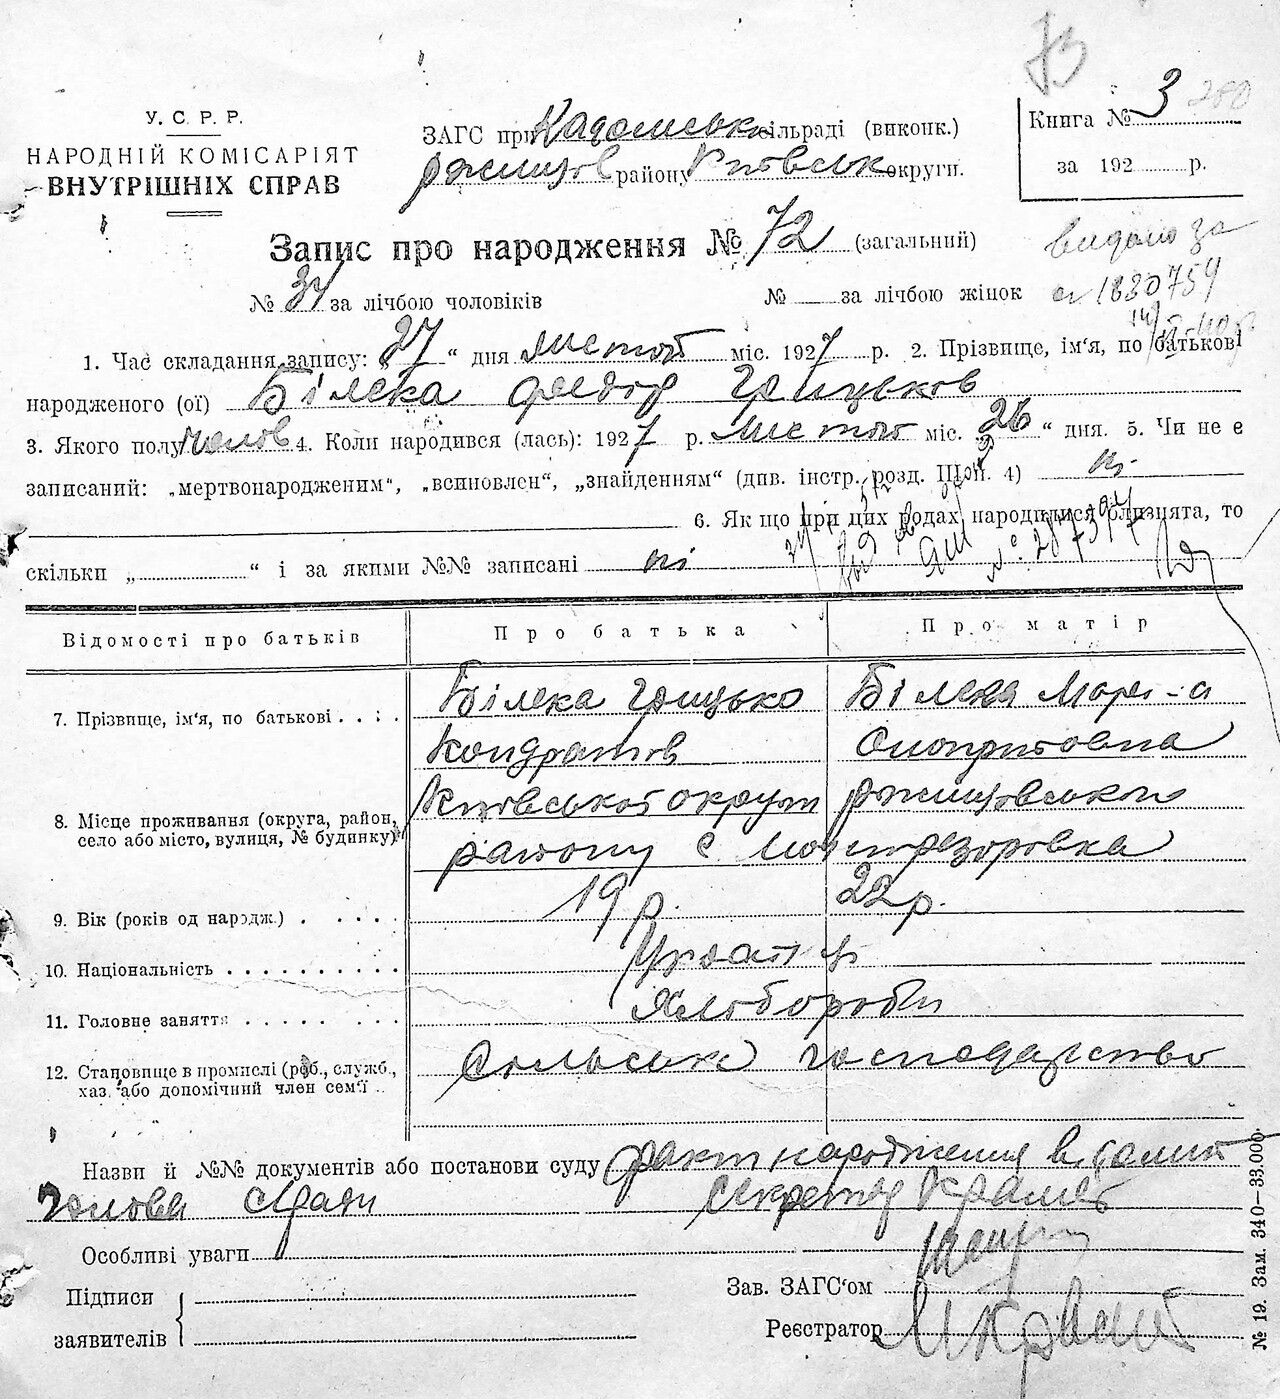 73
У. С. Р. Р.
НАРОДНІЙ КОМІСАРІЯТ
ВНУТРІШНІХ СПРАВ
ЗАГС при Кадомськ сільраді (виконк.)
ржищов району Київськ округи.
Книга № 3 280
за 192 р.
Запис про народження № 72 (загальний)
№ 34 за лічбою чоловіків № за лічбою жінок
видано за
1880754
1. Час складання запису: „27“ дня листоп міс. 1927 р. 2. Прізвище, ім'я, по батькові
народженого (ої) Білека Федір Грицьков
3. Якого полу челов 4. Коли народився (лась): 1927 р. листоп міс. 26 “ дня. 5. Чи не є
записаний: „мертвонародженим“, „всиновлен“, „знайденням“ (див. інстр. розд. Шой. 4) ні
6. Як що при цих родах народилися близнята, то
скільки „ “ і за якими №№ записані ні
№ 287397
Відомості про батьків Про батька Про матір
7. Прізвище, ім'я, по батькові Білека Грицько Білека Марія
Кондратов Оноприовна
8. Місце проживання (округа, район, село або місто, вулиця, № будинку) Київської округи ржищовського
району с
9. Вік (років од народж.) 19 р. 22 р.
10. Національність Україн ці
11. Головне заняття Хлібороби
12. Становище в промислі (роб., служб., хаз. або допомічний член сем'ї Сільське господарство
Назви й №№ документів або постанови суду факт народження
Голова с/ради секретар
Особливі уваги
Підписи
заявителів
Зав. ЗАГС'ом
Реєстратор
№ 19. Зам. 340—33.000.